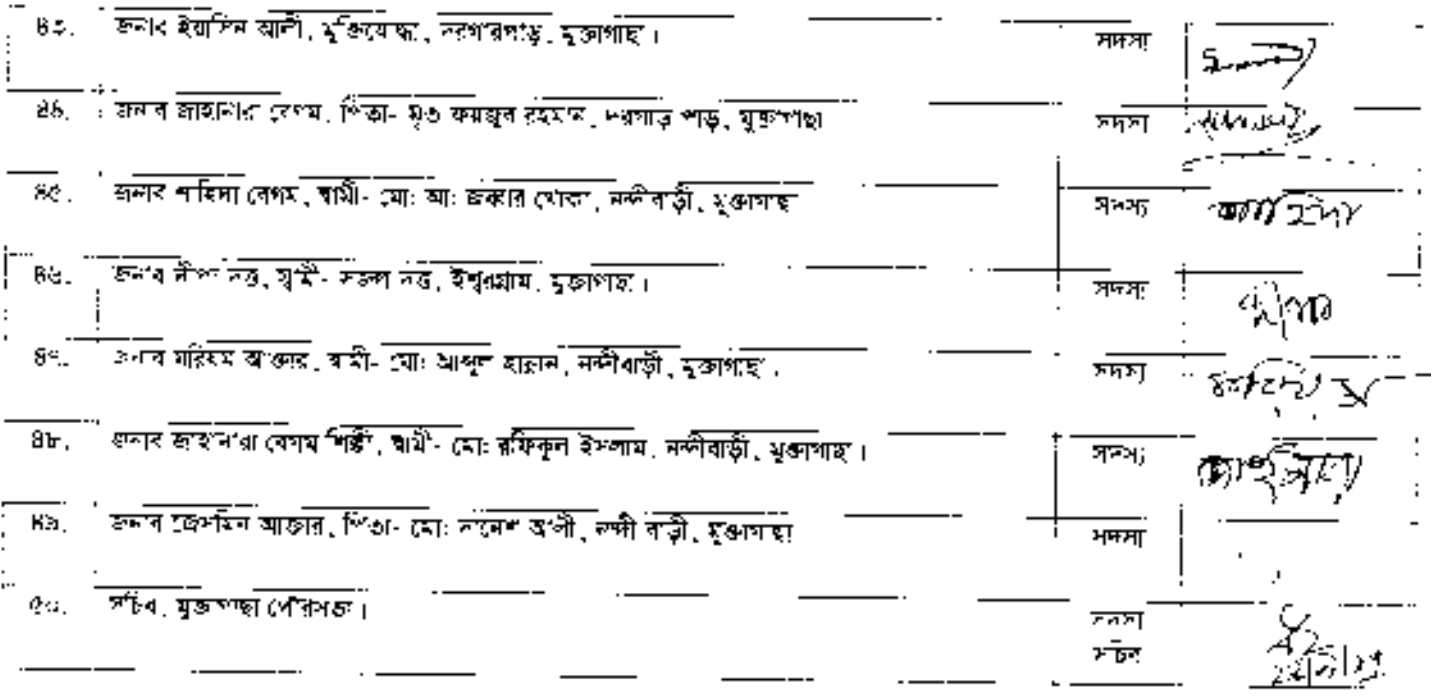 ৪৩. জনাব ইয়াসিন আলী, মুক্তিযোদ্ধা, দরগারপাড়, মুক্তাগাছা। সদস্য
৪৪. জনাব জাহানারা বেগম, পিতা- মৃত ফয়জুর রহমান, দরগাড় পাড়, মুক্তাগাছা সদস্য
৪৫. জনাব শাহিদা বেগম, স্বামী- মো: আ: জব্বার খোকা, নন্দীবাড়ী, মুক্তাগাছা সদস্য
৪৬. জনাব নীপা দত্ত, স্বামী- দত্ত, ঈশ্বরগ্রাম, মুক্তাগাছা। সদস্য
৪৭. জনাব মরিয়ম আক্তার, স্বামী- মো: আব্দুল হান্নান, নন্দীবাড়ী, মুক্তাগাছা। সদস্য
৪৮. জনাব জাহানারা বেগম শিল্পী, স্বামী- মো: রফিকুল ইসলাম, নন্দীবাড়ী, মুক্তাগাছা। সদস্য
৪৯. জনাব জেসমিন আক্তার, পিতা- মো: আলী, নন্দী বাড়ী, মুক্তাগাছা সদস্য
৫০. সচিব, মুক্তাগাছা পৌরসভা। সদস্য
সচিব